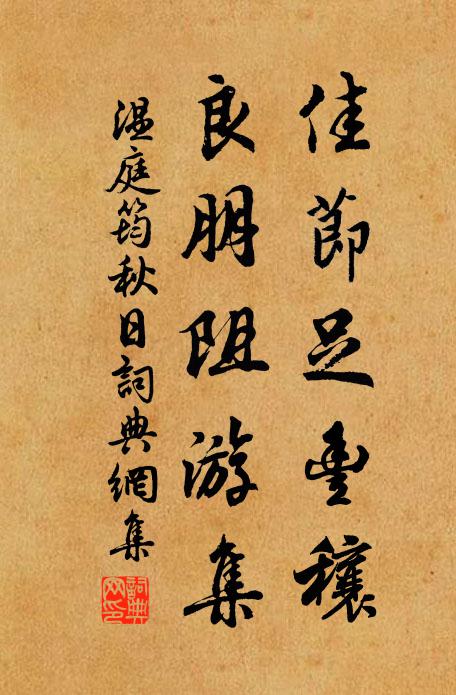 佳節足豊穰
良朋阻游集
温庭筠秋日詞典網集
詞典網印